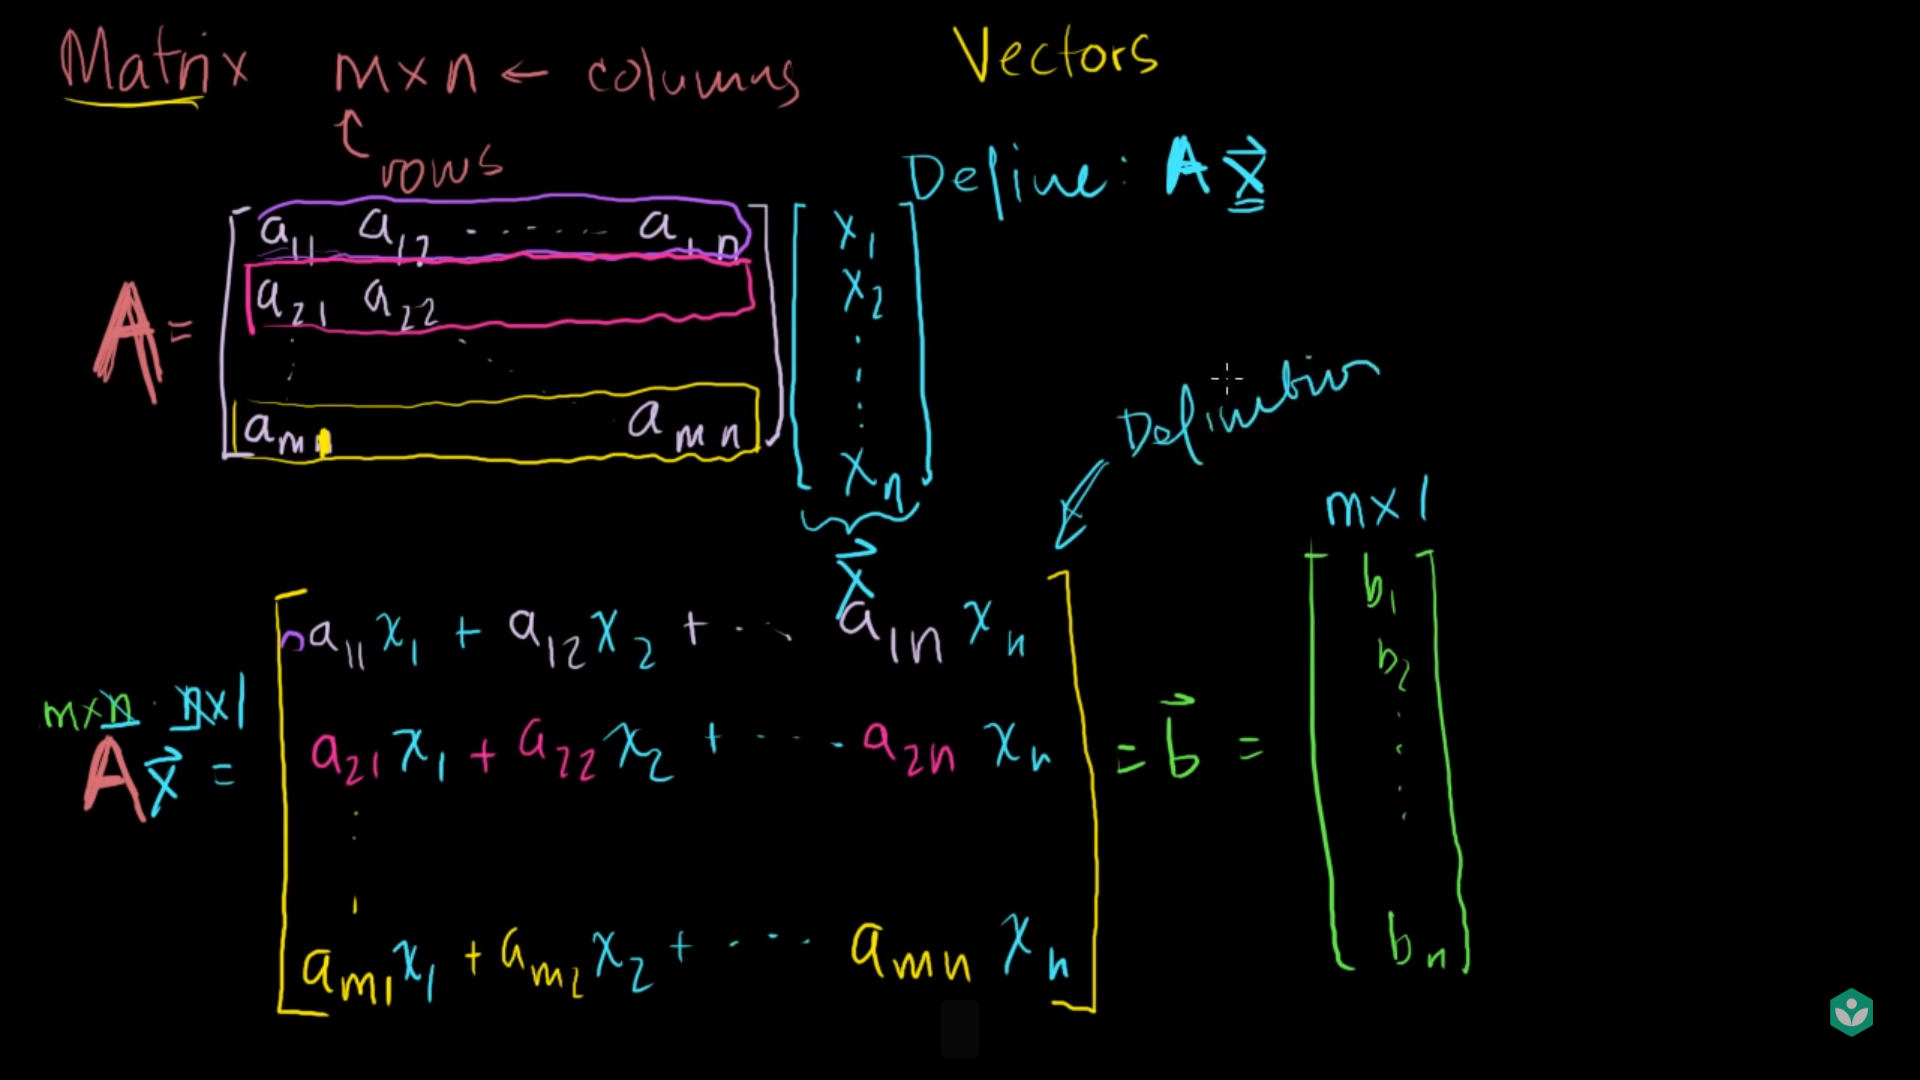 Matrix m×n ← columns
rows
Vectors
Define: A x⃗
A = [ a₁₁ a₁₂ ...... a₁ₙ ] [ x₁ ]
a₂₁ a₂₂ x₂
aₘ aₘₙ xₙ
x⃗
Definition
m×1
m×n · n×1
A x⃗ =
a₁₁x₁ + a₁₂x₂ + ... a₁ₙxₙ
a₂₁x₁ + a₂₂x₂ + .... a₂ₙxₙ
aₘ₁x₁ + aₘ₂x₂ + .... aₘₙxₙ
= b⃗ =
b₁
b₂
bₙ